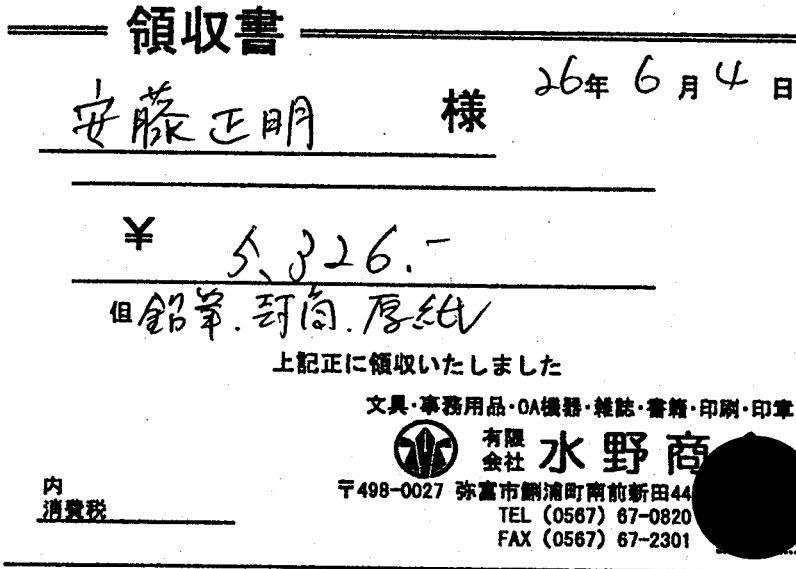 領収書
26年 6月 4日
安藤正明 様
¥ 5,326.-
但 鉛筆.封筒.厚紙
上記正に領収いたしました
文具・事務用品・OA機器・雑誌・書籍・印刷・印章
有限会社 水野商
〒498-0027 弥富市鯏浦町南前新田44
TEL (0567) 67-0820
FAX (0567) 67-2301
内
消費税